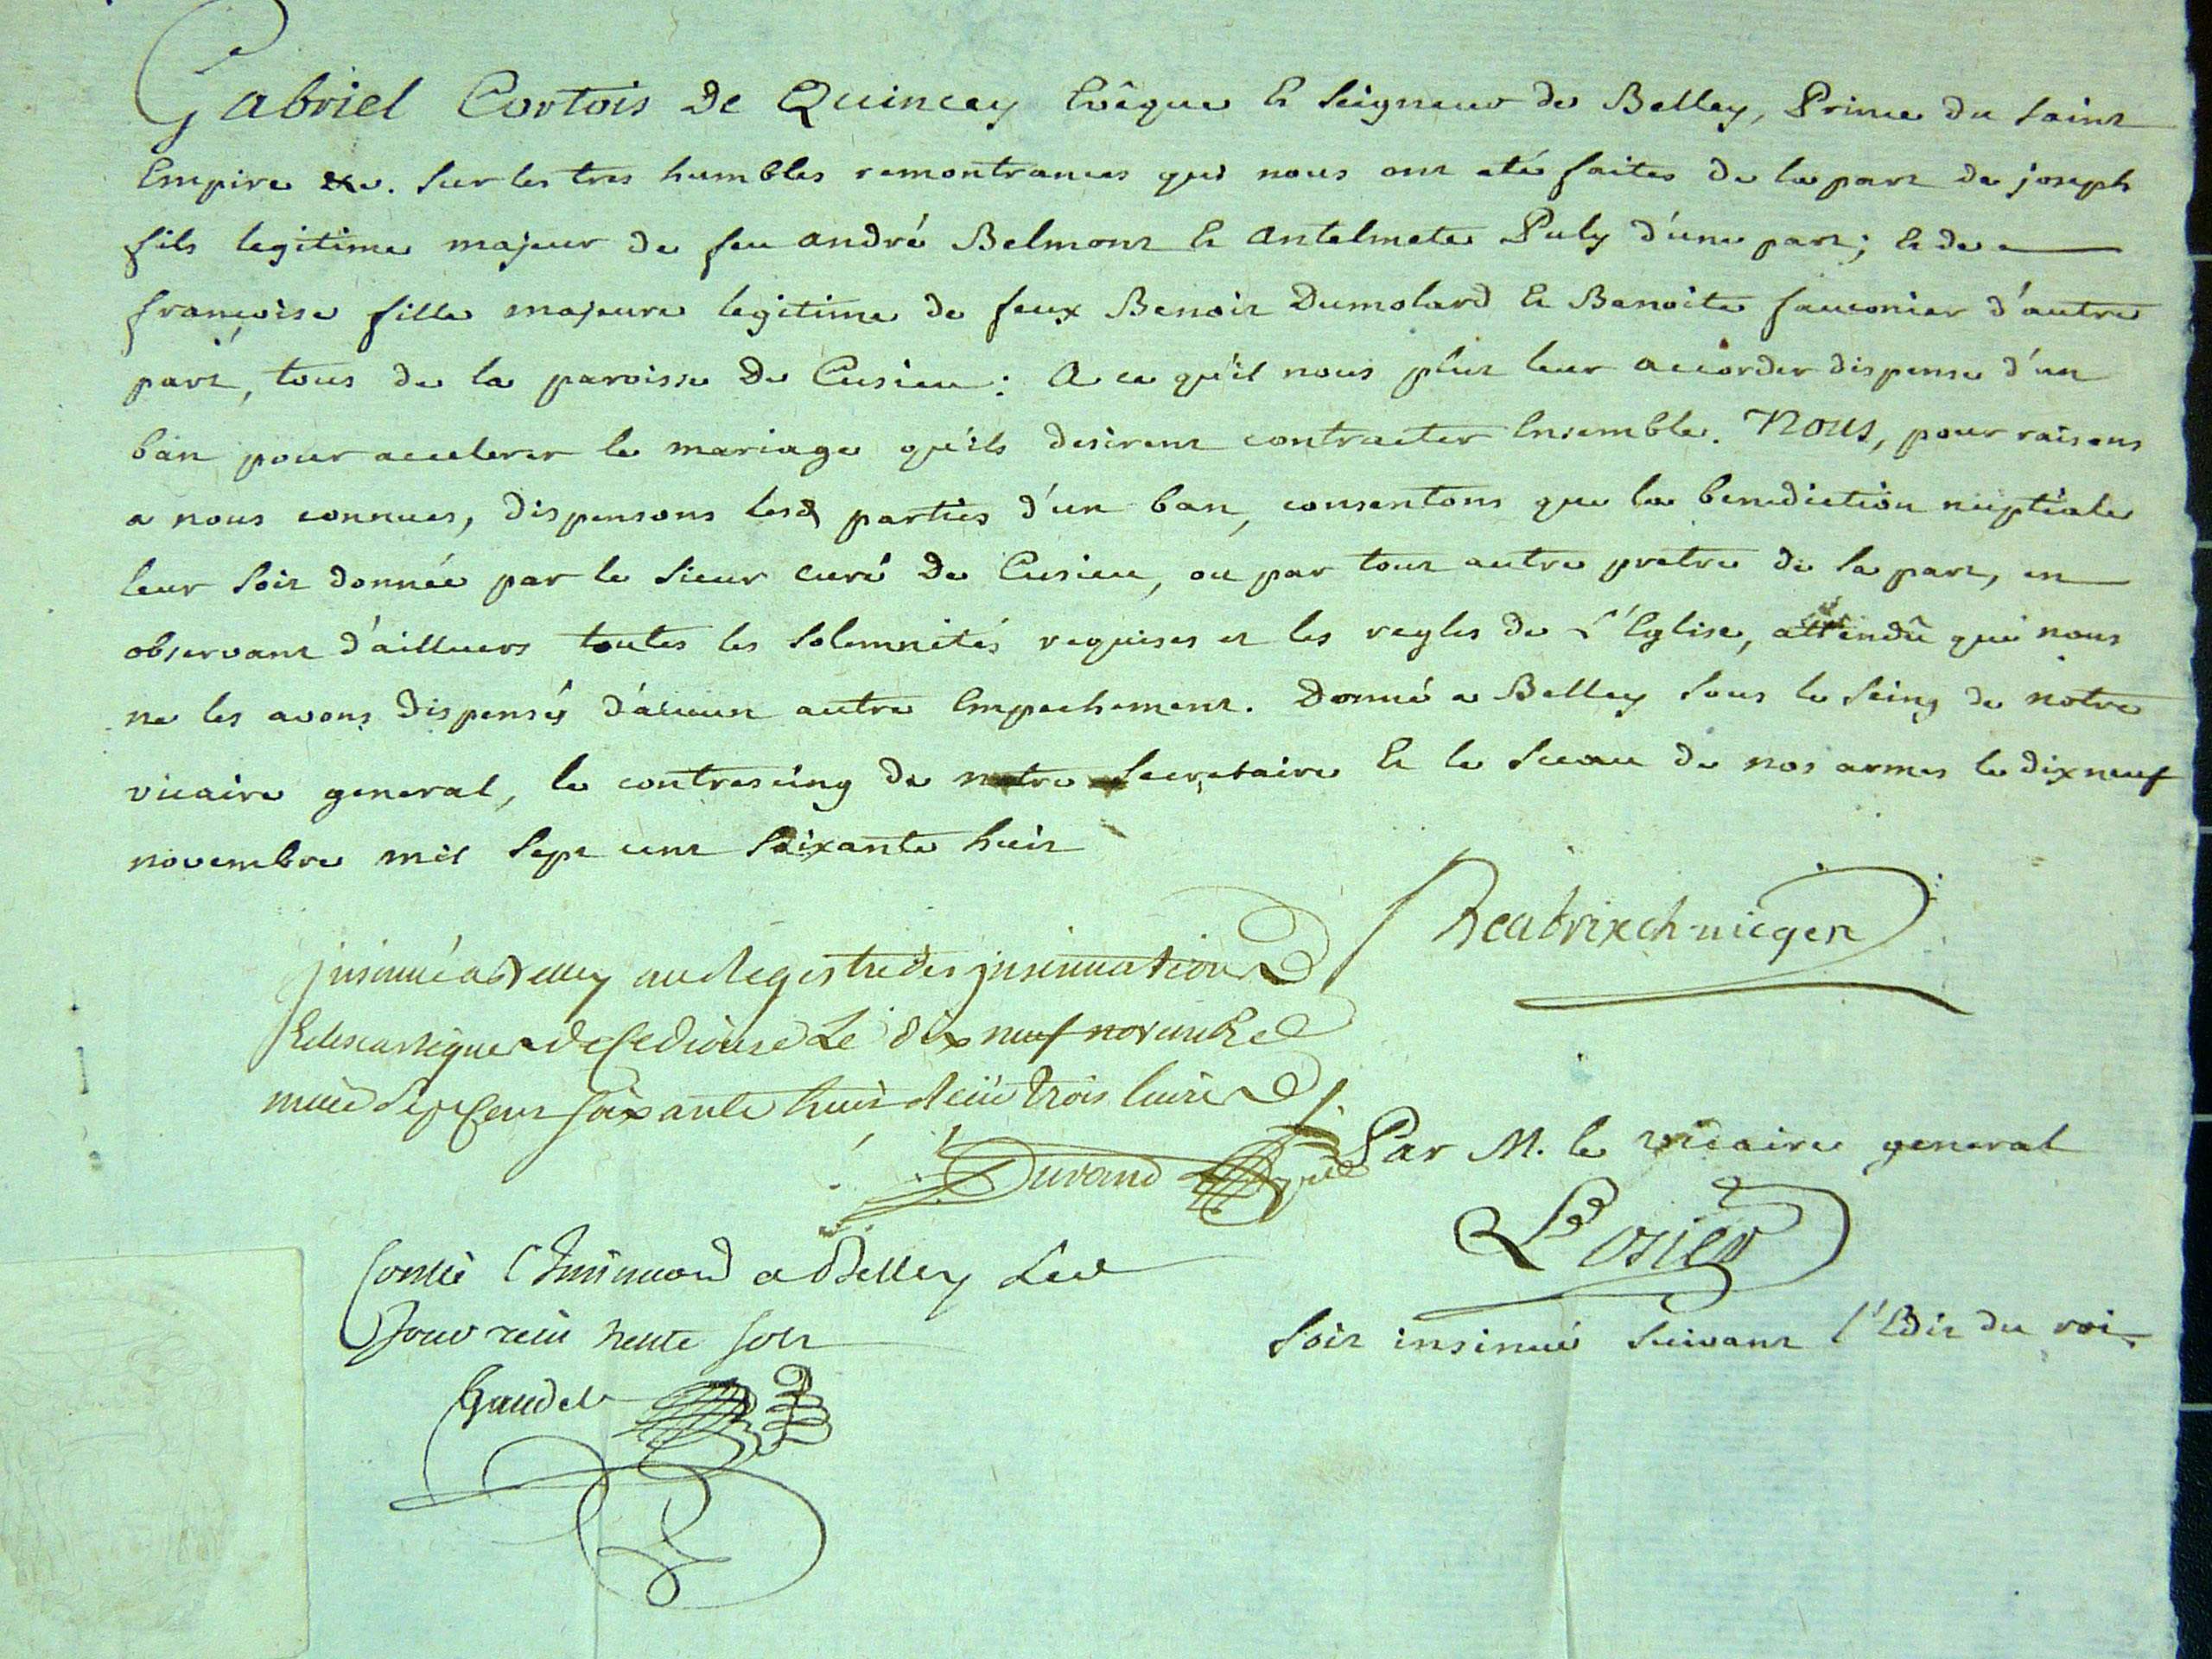 Gabriel Cortois De Quincey Evêque Et Seigneur de Belley, Prince du Saint
Empire &c. Sur les tres humbles remontrances qui nous ont eté faites de la part de joseph
fils legitime majeur de feu andré Belmont Et Antelmete Puly d'une part; Et de
françoise fille majeure legitime de feux Benoit Dumolard Et Benoite fauconier d'autre
part, tous de la paroisse De Cusieu : A ce qu'il nous plut leur accorder dispense d'un
ban pour accelerer le mariage qu'ils desirent contracter Ensemble. Nous, pour raisons
a nous connues, dispensons lesd parties d'un ban, consentons que la benediction nuptiale
leur soit donnée par le Sieur curé De Cusieu, ou par tout autre pretre de sa part, en
observant d'ailluers toutes les Solemnités requises et les regles de L'Eglise, attendû que nous
ne les avons dispensés d'aucun autre Empechement. Donné a Belley Sous le Seing de notre
vicaire general, le contreseing de notre Secretaire Et le Sceau de nos armes le dixneuf
novembre mil Sept cent Soixante huit
Beatrix ch vic gen
jnsinué a Belley au Registre des jnsinuations
Ecclesiastiques de Ce diocese Le dix neuf novembre
mille Sept Cent Soixante huit Reçu trois livres
Durand
Par M. le vicaire general
Losier
Contlé a Belley Led
Jour reçu trente sols
Gaudet
Soit insinué Suivant l'Edit du roi